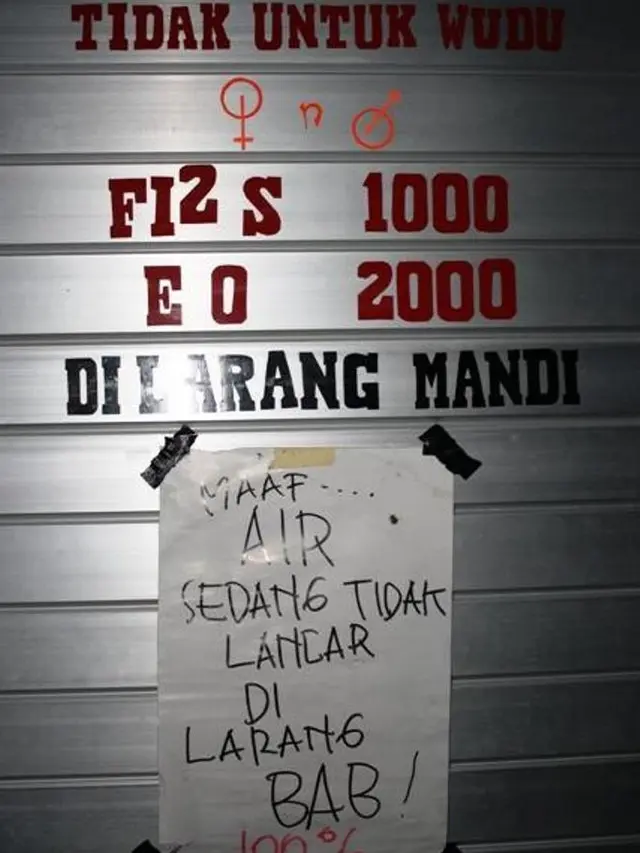 TIDAK UNTUK WUDU
♀ n ♂
FI2 S 1000
E O 2000
DILARANG MANDI
MAAF....
AIR
SEDANG TIDAK
LANCAR
DI
LARANG
BAB!
100%